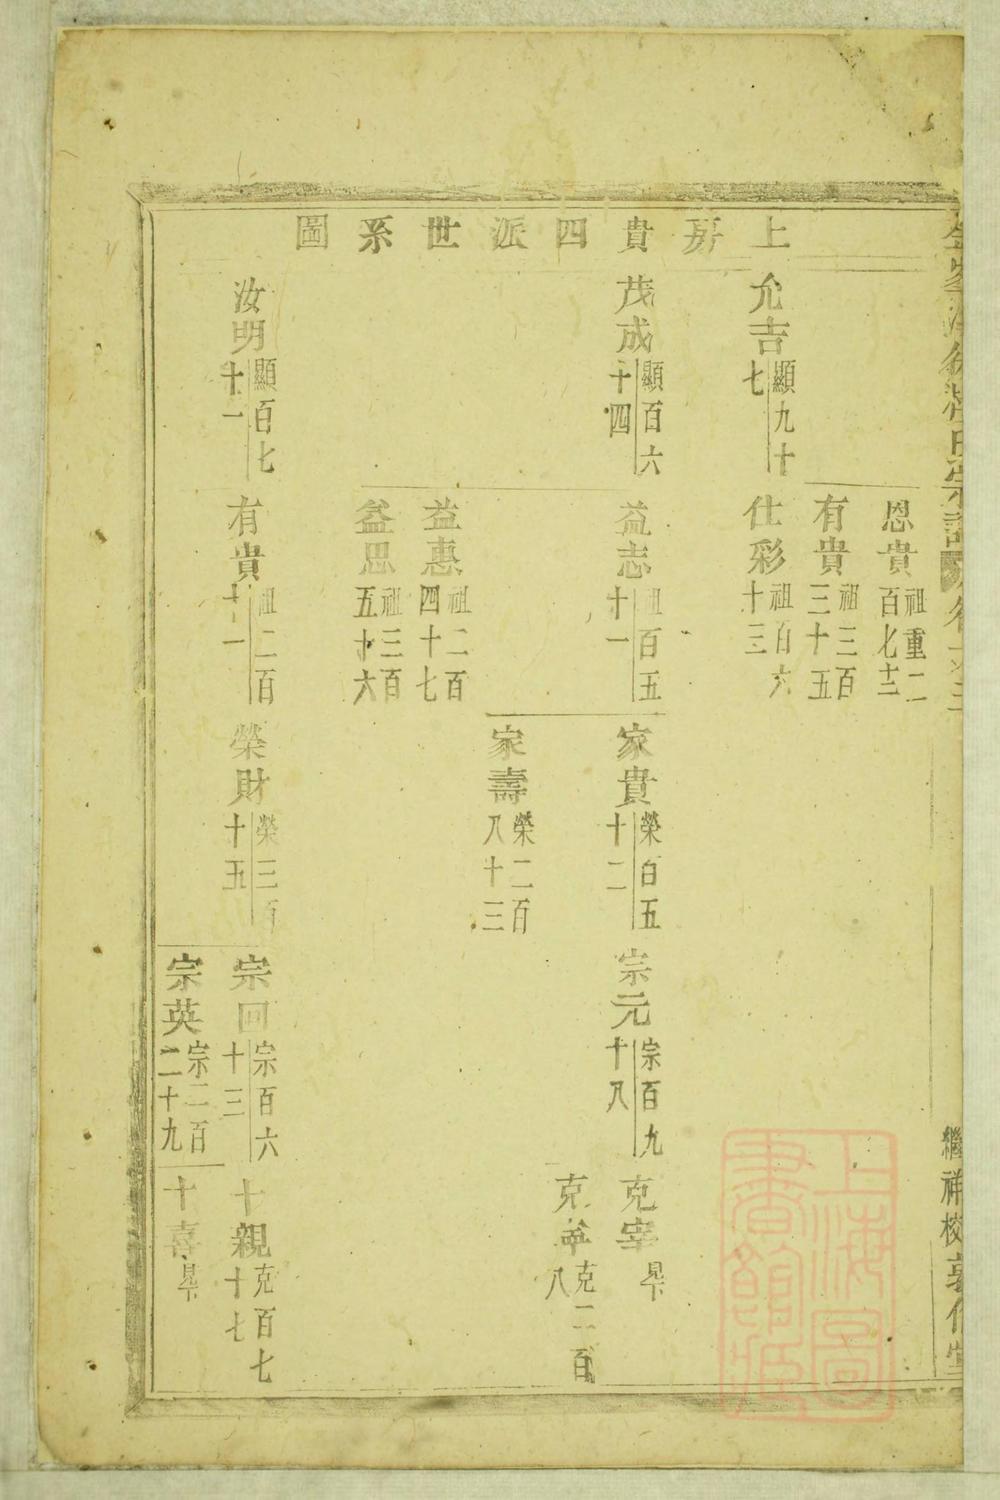 上房貴四派世系圖
恩貴 祖重二百七十三
有貴 祖三百三十五
允吉 顯九十七
仕彩 祖百六十三
茂成 顯百六十四
益志 祖百五十一
家貴 榮百五十二
宗元 宗百九十八
克宰 見下
克華 克二百八
家壽 榮二百八十三
益惠 祖二百四十七
益思 祖三百五十六
汝明 顯百七十一
有貴 祖二百十一
榮財 榮三百十五
宗回 宗百六十三
十親 克百七十七
宗英 宗二百二十九
十喜 見下
繼祥校
上海圖書館藏